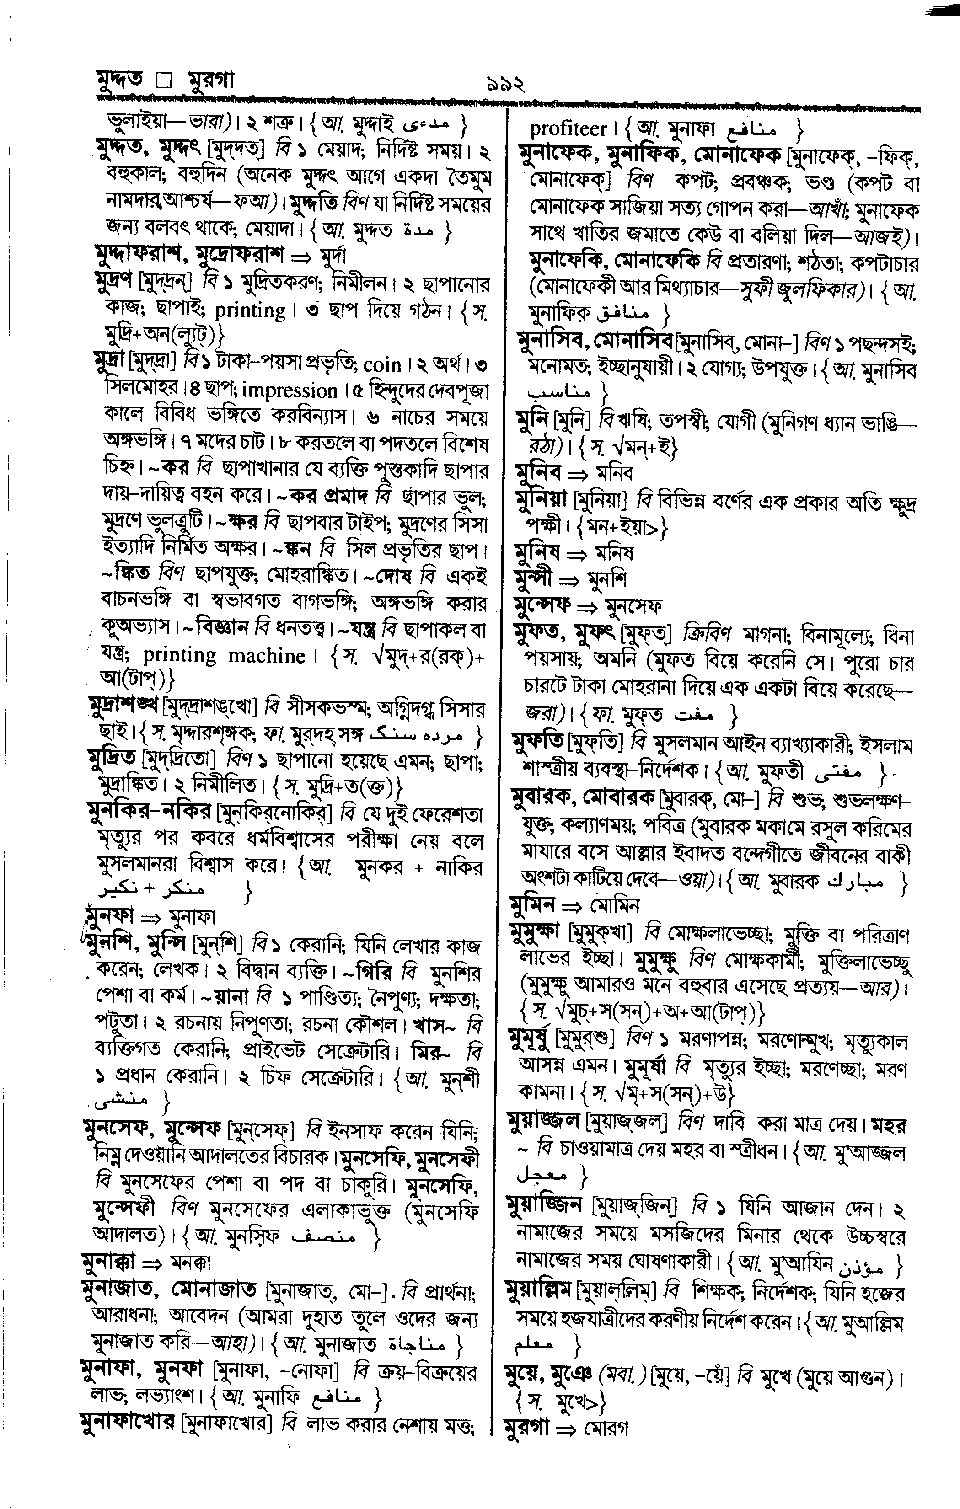 মুদ্দত □ মুরগা
৯৯২
ভুলাইয়া—ভারা)। ২ শত্রু। {আ. মুদ্দাই مدعى }
মুদ্দত, মুদ্দৎ [মুদ্‌দত] বি ১ মেয়াদ; নির্দিষ্ট সময়। ২
বহুকাল; বহুদিন (অনেক মুদ্দৎ আগে একদা তৈমুম
নামদার আশ্চর্য—ফআ)। মুদ্দতি বিণ যা নির্দিষ্ট সময়ের
জন্য বলবৎ থাকে; মেয়াদা। {আ. মুদ্দত مدة }
মুদ্দাফরাশ, মুদ্রোফরাশ ⇒ মুর্দা
মুদ্রণ [মুদ্‌দ্রন্] বি ১ মুদ্রিতকরণ; নিমীলন। ২ ছাপানোর
কাজ; ছাপাই; printing। ৩ ছাপ দিয়ে গঠন। {স.
মুদ্রি+অন(ল্যুট্)}
মুদ্রা [মুদ্‌দ্রা] বি ১ টাকা-পয়সা প্রভৃতি; coin। ২ অর্থ। ৩
সিলমোহর। ৪ ছাপ; impression। ৫ হিন্দুদের দেবপূজা
কালে বিবিধ ভঙ্গিতে করবিন্যাস। ৬ নাচের সময়ে
অঙ্গভঙ্গি। ৭ মদের চাট। ৮ করতলে বা পদতলে বিশেষ
চিহ্ন। ~কর বি ছাপাখানার যে ব্যক্তি পুস্তকাদি ছাপার
দায়-দায়িত্ব বহন করে। ~কর প্রমাদ বি ছাপার ভুল;
মুদ্রণে ভুলত্রুটি। ~ক্ষর বি ছাপবার টাইপ; মুদ্রণের সিসা
ইত্যাদি নির্মিত অক্ষর। ~ঙ্কন বি সিল প্রভৃতির ছাপ।
~ঙ্কিত বিণ ছাপযুক্ত; মোহরাঙ্কিত। ~দোষ বি একই
বাচনভঙ্গি বা স্বভাবগত বাগভঙ্গি; অঙ্গভঙ্গি করার
কুঅভ্যাস। ~বিজ্ঞান বি ধনতত্ত্ব। ~যন্ত্র বি ছাপাকল বা
যন্ত্র; printing machine। {স. √মুদ্+র(রক্)+
আ(টাপ্)}
মুদ্রাশঙ্খ [মুদ্‌দ্রাশঙ্‌খো] বি সীসকভস্ম; অগ্নিদগ্ধ সিসার
ছাই। {স. মৃদ্দারশৃঙ্গক; ফা. মুরদহ্ সঙ্গ مرده سنگ }
মুদ্রিত [মুদ্‌দ্রিতো] বিণ ১ ছাপানো হয়েছে এমন; ছাপা;
মুদ্রাঙ্কিত। ২ নিমীলিত। {স. মুদ্রি+ত(ক্ত)}
মুনকির-নকির [মুন্‌কির্‌নোকির্] বি যে দুই ফেরেশতা
মৃত্যুর পর কবরে ধর্মবিশ্বাসের পরীক্ষা নেয় বলে
মুসলমানরা বিশ্বাস করে। {আ. মুনকর + নাকির
منكر + نكير }
মুনফা ⇒ মুনাফা
মুনশি, মুন্সি [মুন্‌শি] বি ১ কেরানি; যিনি লেখার কাজ
করেন; লেখক। ২ বিদ্বান ব্যক্তি। ~গিরি বি মুনশির
পেশা বা কর্ম। ~য়ানা বি ১ পাণ্ডিত্য; নৈপুণ্য; দক্ষতা;
পটুতা। ২ রচনায় নিপুণতা; রচনা কৌশল। খাস~ বি
ব্যক্তিগত কেরানি; প্রাইভেট সেক্রেটারি। মির~ বি
১ প্রধান কেরানি। ২ চিফ সেক্রেটারি। {আ. মুন্‌শী
منشى }
মুনসেফ, মুন্সেফ [মুন্‌সেফ্] বি ইনসাফ করেন যিনি;
নিম্ন দেওয়ানি আদালতের বিচারক। মুনসেফি, মুনসেফী
বি মুনসেফের পেশা বা পদ বা চাকুরি। মুনসেফি,
মুন্সেফী বিণ মুনসেফের এলাকাভুক্ত (মুনসেফি
আদালত)। {আ. মুনসিফ় منصف }
মুনাক্কা ⇒ মনক্কা
মুনাজাত, মোনাজাত [মুনাজাত, মো-] বি প্রার্থনা;
আরাধনা; আবেদন (আমরা দুহাত তুলে ওদের জন্য
মুনাজাত করি—আহা)। {আ. মুনাজাত مناجاة }
মুনাফা, মুনফা [মুনাফা, -নোফা] বি ক্রয়-বিক্রয়ের
লাভ; লভ্যাংশ। {আ. মুনাফি منافع }
মুনাফাখোর [মুনাফাখোর] বি লাভ করার নেশায় মত্ত;
profiteer। {আ. মুনাফা منافع }
মুনাফেক, মুনাফিক, মোনাফেক [মুনাফেক্, -ফিক্,
মোনাফেক্] বিণ কপট; প্রবঞ্চক; ভণ্ড (কপট বা
মোনাফেক সাজিয়া সত্য গোপন করা—আখাঁ; মুনাফেক
সাথে খাতির জমাতে কেউ বা বলিয়া দিল—আজই)।
মুনাফেকি, মোনাফেকি বি প্রতারণা; শঠতা; কপটাচার
(মোনাফেকী আর মিথ্যাচার—সুফী জুলফিকার)। {আ.
মুনাফিক় منافق }
মুনাসিব, মোনাসিব [মুনাসিব্, মোনা-] বিণ ১ পছন্দসই;
মনোমত; ইচ্ছানুযায়ী। ২ যোগ্য; উপযুক্ত। {আ. মুনাসিব
مناسب }
মুনি [মুনি] বি ঋষি; তপস্বী; যোগী (মুনিগণ ধ্যান ভাঙি—
রঠা)। {স. √মন্+ই}
মুনিব ⇒ মনিব
মুনিয়া [মুনিয়া] বি বিভিন্ন বর্ণের এক প্রকার অতি ক্ষুদ্র
পক্ষী। {মন+ইয়া>}
মুনিষ ⇒ মনিষ
মুন্সী ⇒ মুনশি
মুন্সেফ ⇒ মুনসেফ
মুফত, মুফৎ [মুফ্‌ত্] ক্রিবিণ মাগনা; বিনামূল্যে; বিনা
পয়সায়; অমনি (মুফত বিয়ে করেনি সে। পুরো চার
চারটে টাকা মোহরানা দিয়ে এক একটা বিয়ে করেছে—
জরা)। {ফা. মুফ্‌ত مفت }
মুফতি [মুফ্‌তি] বি মুসলমান আইন ব্যাখ্যাকারী; ইসলাম
শাস্ত্রীয় ব্যবস্থা-নির্দেশক। {আ. মুফতী مفتى }
মুবারক, মোবারক [মুবারক্, মো-] বি শুভ; শুভলক্ষণ-
যুক্ত; কল্যাণময়; পবিত্র (মুবারক মকামে রসূল করিমের
মাযারে বসে আল্লার ইবাদত বন্দেগীতে জীবনের বাকী
অংশটা কাটিয়ে দেবে—ওয়া)। {আ. মুবারক مبارك }
মুমিন ⇒ মোমিন
মুমুক্ষা [মুমুক্‌খা] বি মোক্ষলাভেচ্ছা; মুক্তি বা পরিত্রাণ
লাভের ইচ্ছা। মুমুক্ষু বিণ মোক্ষকামী; মুক্তিলাভেচ্ছু
(মুমুক্ষু আমারও মনে বহুবার এসেছে প্রত্যয়—আর)।
{স. √মুচ্+স(সন্)+অ+আ(টাপ্)}
মুমূর্ষু [মুমুর্‌শু] বিণ ১ মরণাপন্ন; মরণোন্মুখ; মৃত্যুকাল
আসন্ন এমন। মুমূর্ষা বি মৃত্যুর ইচ্ছা; মরণেচ্ছা; মরণ
কামনা। {স. √মৃ+স(সন্)+উ}
মুয়াজ্জল [মুয়াজ্‌জল্] বিণ দাবি করা মাত্র দেয়। মহর
~ বি চাওয়ামাত্র দেয় মহর বা স্ত্রীধন। {আ. মু'আজ্জল
معجل }
মুয়াজ্জিন [মুয়াজ্‌জিন্] বি ১ যিনি আজান দেন। ২
নামাজের সময়ে মসজিদের মিনার থেকে উচ্চস্বরে
নামাজের সময় ঘোষণাকারী। {আ. মু'আযিন مؤذن }
মুয়াল্লিম [মুয়াল্‌লিম্] বি শিক্ষক; নির্দেশক; যিনি হজের
সময়ে হজযাত্রীদের করণীয় নির্দেশ করেন। {আ. মুআল্লিম
معلم }
মুয়ে, মুঞে (মবা.) [মুয়ে, -য়েঁ] বি মুখে (মুয়ে আগুন)।
{স. মুখে>}
মুরগা ⇒ মোরগ